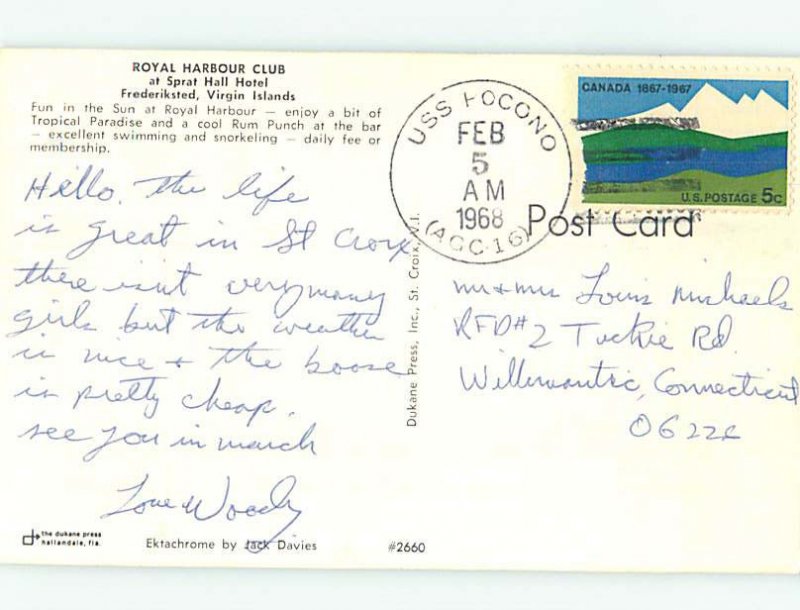 ROYAL HARBOUR CLUB
at Sprat Hall Hotel
Frederiksted, Virgin Islands
Fun in the Sun at Royal Harbour — enjoy a bit of
Tropical Paradise and a cool Rum Punch at the bar
— excellent swimming and snorkeling — daily fee or
membership.
Hello. The life
is great in St Croix
there isn't very many
girls but the weather
is nice + the boose
is pretty cheap.
see you in march
Love Woody
USS POCONO
FEB
5
AM
1968
(AGC-16)
CANADA 1867-1967
U.S. POSTAGE 5c
Post Card
Mr + Mrs Louis Michaels
RFD #2 Tuckie Rd.
Willimantic, Connecticut
06226
Dukane Press, Inc., St. Croix, V.I.
the dukane press
hallandale, fla.
Ektachrome by Jack Davies
#2660